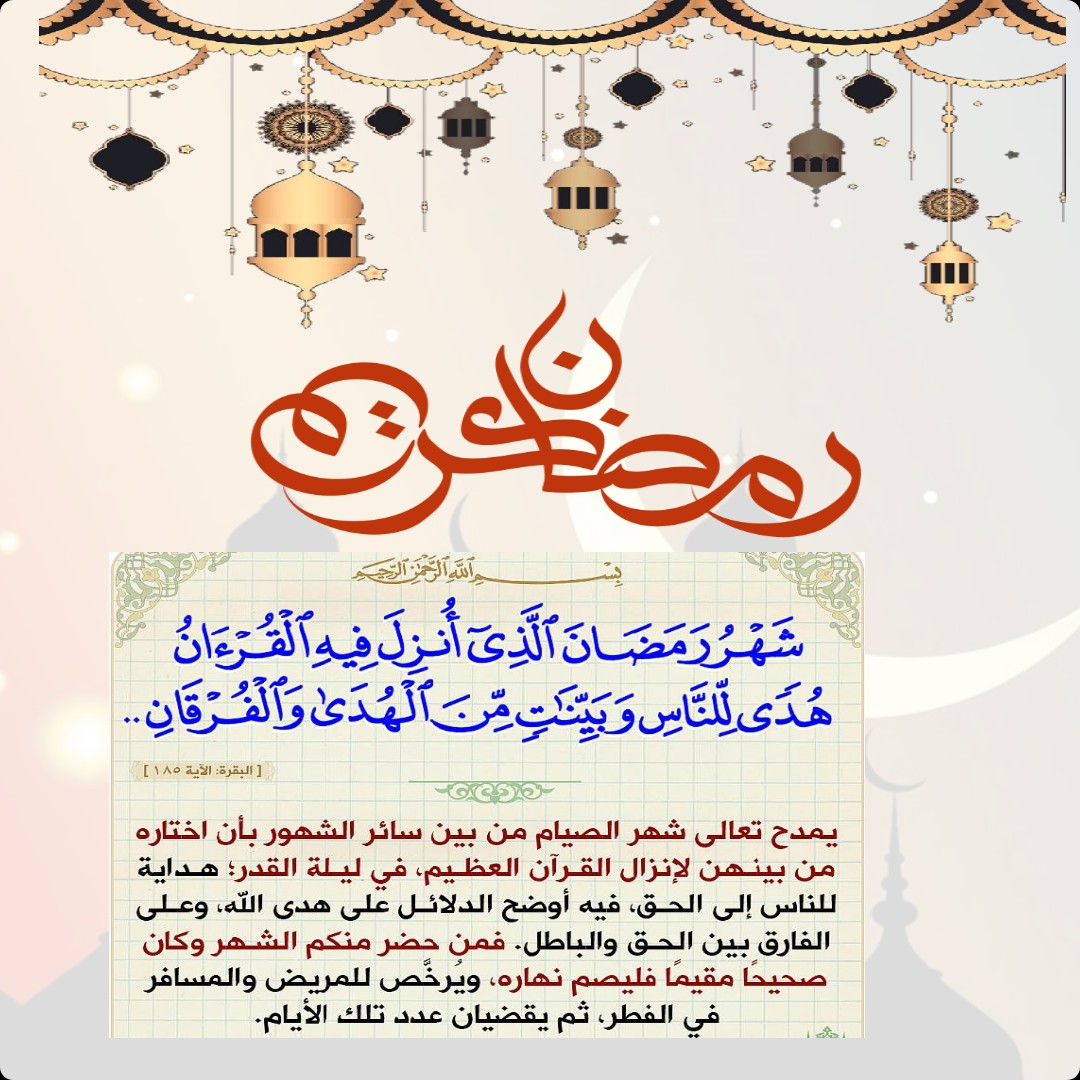 رمضان كريم
بِسْمِ ٱللَّهِ ٱلرَّحْمَٰنِ ٱلرَّحِيمِ
شَهْرُ رَمَضَانَ ٱلَّذِىٓ أُنزِلَ فِيهِ ٱلْقُرْءَانُ
هُدًى لِّلنَّاسِ وَبَيِّنَٰتٍ مِّنَ ٱلْهُدَىٰ وَٱلْفُرْقَانِ..
[ البقرة: الآية ١٨٥ ]
يمدح تعالى شهر الصيام من بين سائر الشهور بأن اختاره
من بينهن لإنزال القرآن العظيم، في ليلة القدر؛ هداية
للناس إلى الحق، فيه أوضح الدلائل على هدى الله، وعلى
الفارق بين الحق والباطل. فمن حضر منكم الشهر وكان
صحيحًا مقيمًا فليصم نهاره، ويُرخَّص للمريض والمسافر
في الفطر، ثم يقضيان عدد تلك الأيام.